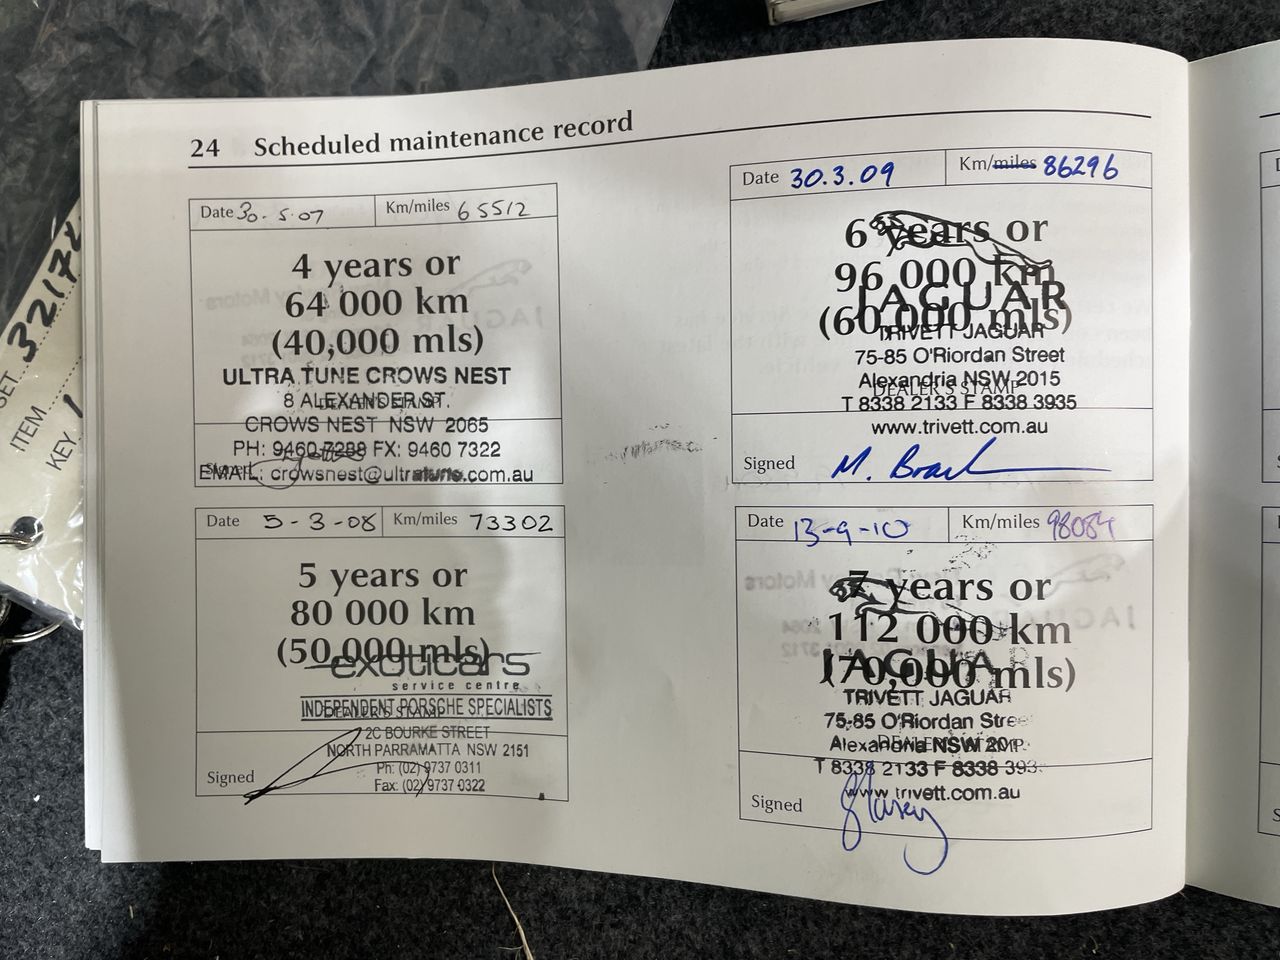 24 Scheduled maintenance record
Date 30-5-07 Km/miles 65512
4 years or
64 000 km
(40,000 mls)
ULTRA TUNE CROWS NEST
8 ALEXANDER ST.
DEALER'S STAMP
CROWS NEST NSW 2065
PH: 9460 7288 FX: 9460 7322
EMAIL: crowsnest@ultratune.com.au
Date 5-3-08 Km/miles 73302
5 years or
80 000 km
(50,000 mls)
exoticars
service centre
INDEPENDENT PORSCHE SPECIALISTS
DEALER'S STAMP
2C BOURKE STREET
NORTH PARRAMATTA NSW 2151
Ph: (02) 9737 0311
Signed
Fax: (02) 9737 0322
Date 30.3.09 Km/miles 86296
6 years or
96 000 km
JAGUAR
(60,000 mls)
TRIVETT JAGUAR
75-85 O'Riordan Street
Alexandria NSW 2015
DEALER'S STAMP
T 8338 2133 F 8338 3935
www.trivett.com.au
Signed
Date 13-9-10 Km/miles 98084
7 years or
112 000 km
JAGUAR
(70,000 mls)
TRIVETT JAGUAR
75-85 O'Riordan Stree
Alexandria NSW 20
DEALER'S STAMP
T 8338 2133 F 8338 393
www.trivett.com.au
Signed
321172
ITEM
KEY 1